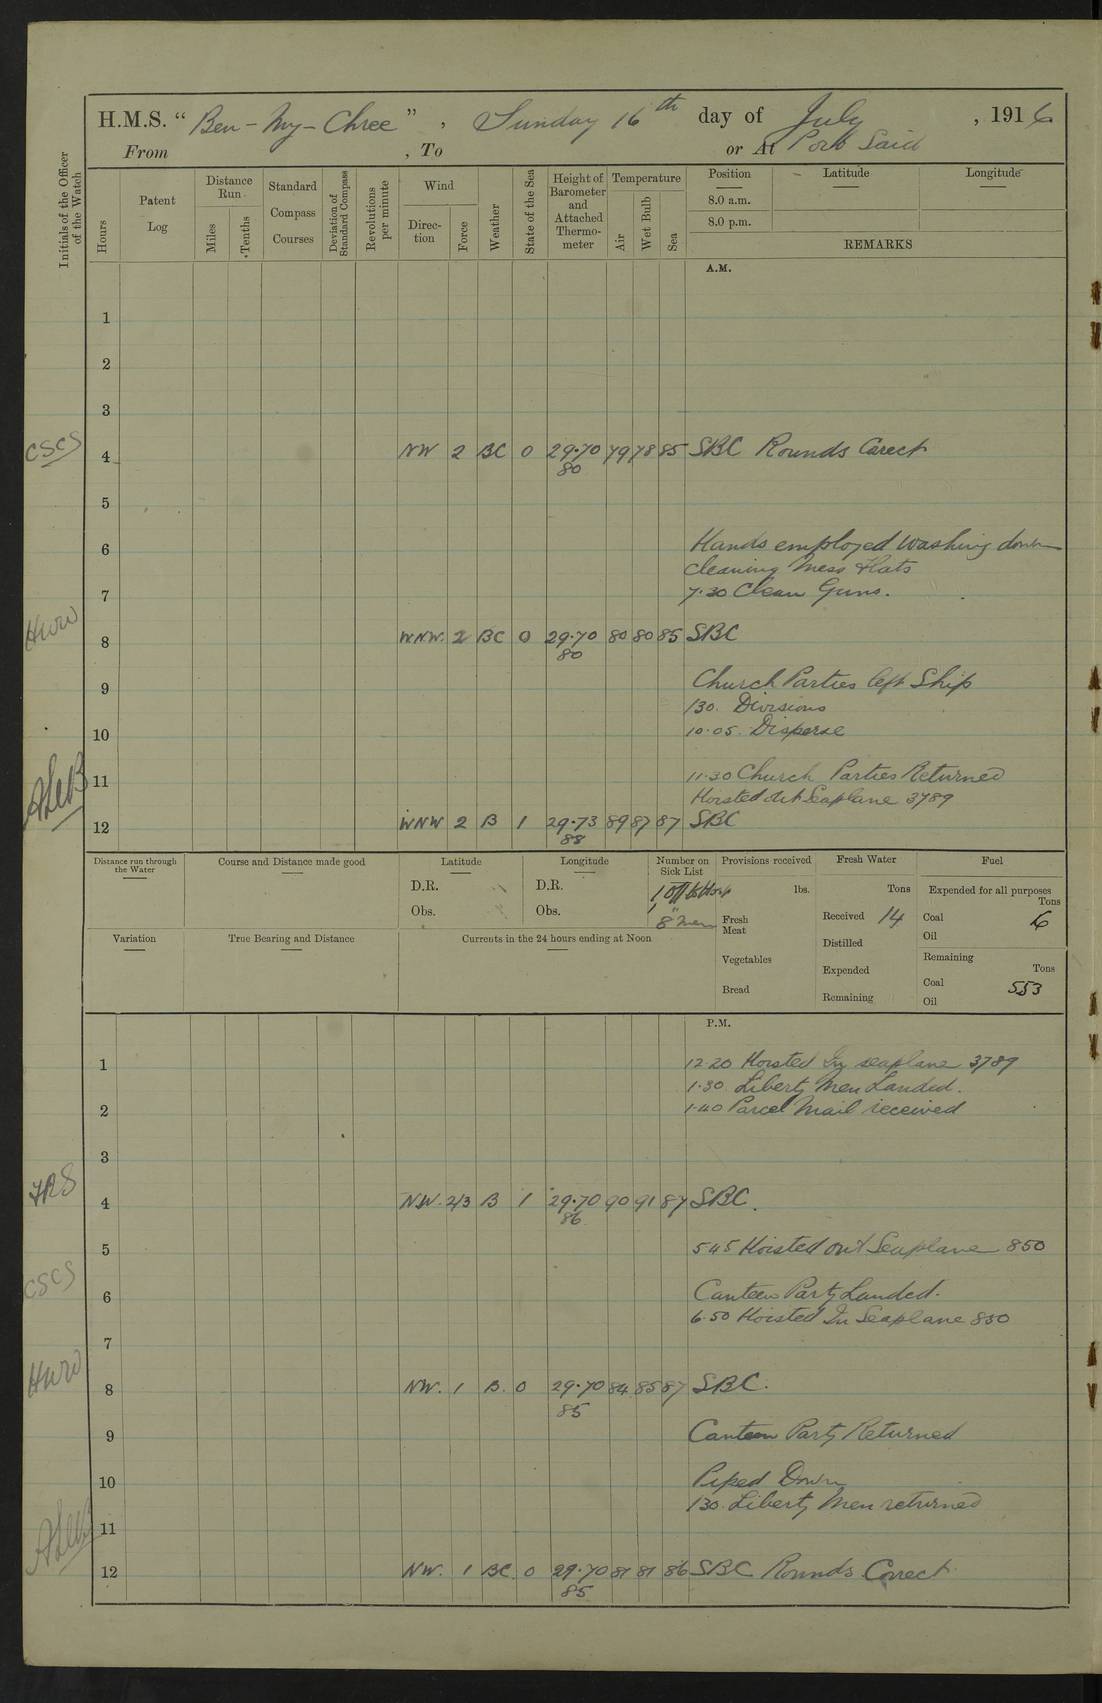 H.M.S. “Ben-My-Chree”, Sunday 16th day of July, 1916
From , To or At Port Said
Initials of the Officer of the Watch
Hours
Patent Log
Distance Run
Miles
Tenths
Standard Compass Courses
Deviation of Standard Compass
Revolutions per minute
Wind
Direction
Force
Weather
State of the Sea
Height of Barometer and Attached Thermometer
Temperature
Air
Wet Bulb
Sea
Position
Latitude
Longitude
8.0 a.m.
8.0 p.m.
REMARKS
A.M.
1
2
3
CSCS 4 NW 2 BC 0 29.70 80 79 78 85 SBC Rounds Corect
5
6 Hands employed washing down
cleaning Mess Flats
7 7.30 Clean Guns.
HWW 8 WNW. 2 BC 0 29.70 80 80 80 85 SBC
9 Church Parties left Ship
130. Divisions
10 10.05. Disperse
11 11.30 Church Parties Returned
Hoisted out Seaplane 3789
12 WNW 2 B 1 29.73 88 89 87 87 SBC
Distance run through the Water
Course and Distance made good
Latitude
D.R.
Obs.
Longitude
D.R.
Obs.
Number on Sick List
8 " Men
Provisions received
lbs.
Fresh Meat
Vegetables
Bread
Fresh Water
Tons
Received 14
Distilled
Expended
Remaining
Fuel
Expended for all purposes
Tons
Coal 6
Oil
Remaining
Tons
Coal 553
Oil
Variation
True Bearing and Distance
Currents in the 24 hours ending at Noon
P.M.
1 12.20 Hoisted In seaplane 3789
1.30 Liberty Men Landed.
2 1.40 Parcel Mail received
3
4 N.W. 2/3 B 1 29.70 86 90 91 87 SBC.
5 5.45 Hoisted out Seaplane 850
CSCS
6 Canteen Party Landed.
6.50 Hoisted In Seaplane 850
7
HWW 8 NW. 1 B. 0 29.70 85 84 85 87 SBC.
9 Canteen Party Returned
10 Piped Down
130. Liberty Men returned
11
12 NW. 1 BC. 0 29.70 85 81 81 86 SBC Rounds Correct